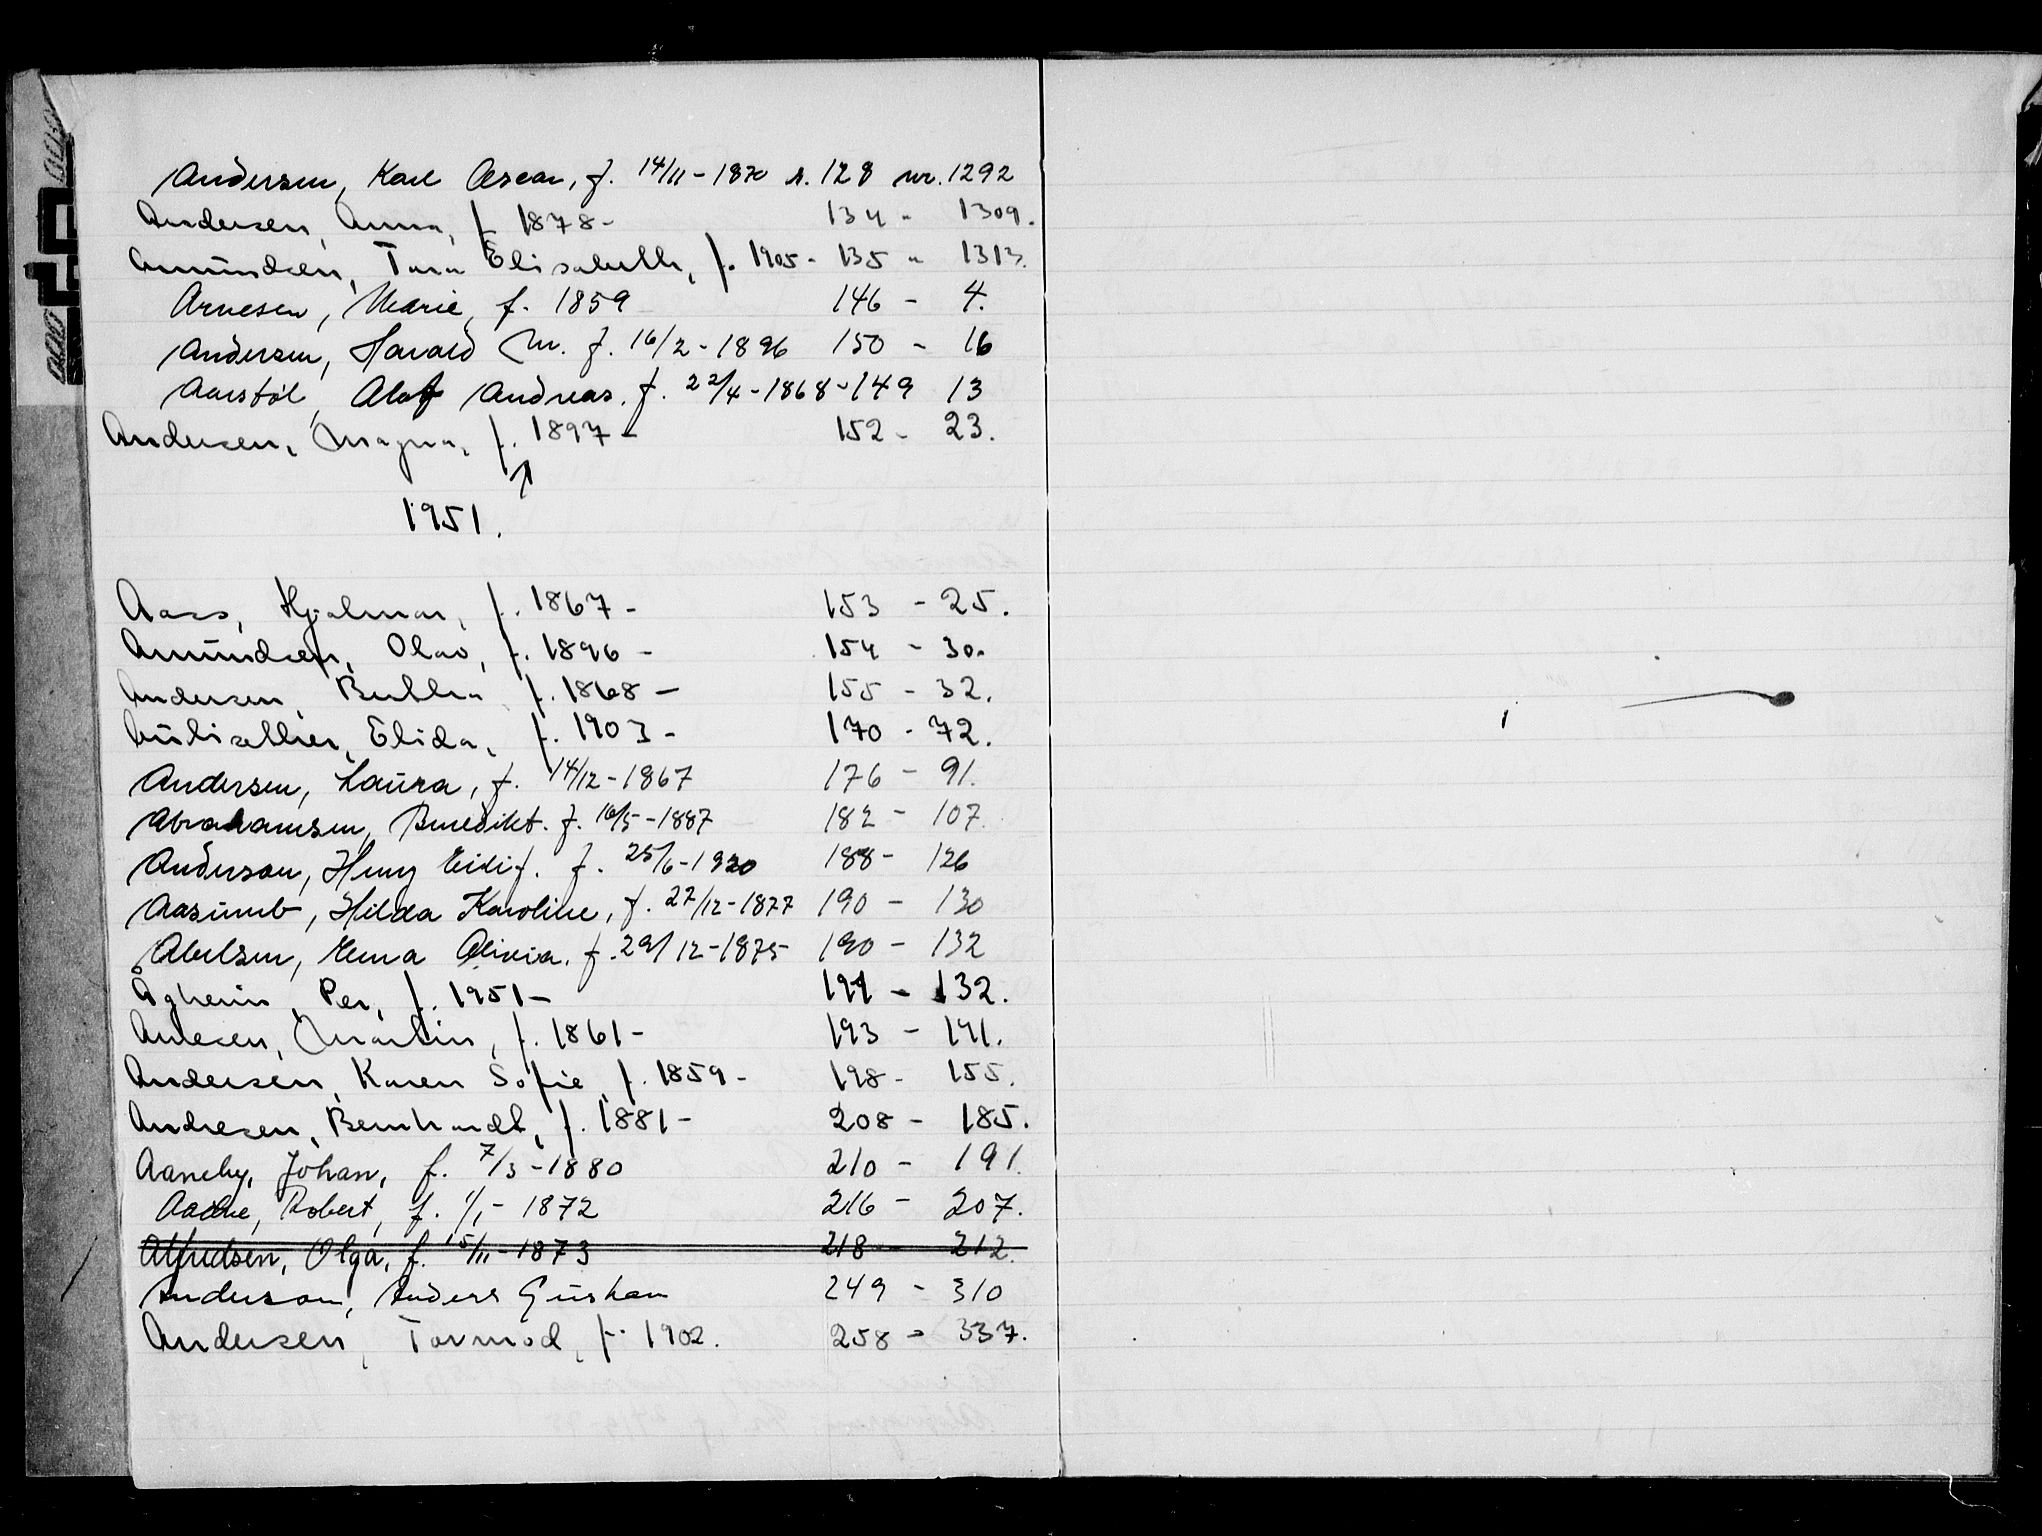 Andersen, Karl Oscar, f. 14/11-1870 s. 128 nr. 1292
Andersen, Anna, f. 1878- 134 - 1309.
Amundsen, Tora Elisabeth, f. 1905- 135 - 1313.
Arnesen, Marie, f. 1859 146 - 4.
Andersen, Harald M. f. 16/2-1896 150 - 16
Aarstøl, Olaf Andreas. f. 22/4-1868-149 13
Andersen, Magna, f. 1897- 152 - 23.
1951.
Aass, Hjalmar, f. 1867- 153 - 25.
Amundsen, Olav, f. 1896- 154 - 30.
Andersen, Bertha f. 1868- 155 - 32.
Elida, f. 1903- 170 - 72.
Andersen, Laura, f. 14/12-1867 176 - 91.
Abrahamsen, Benedikt. f. 16/5-1887 182 - 107.
Anderson, Henry f. 25/6-1920 188 - 126
Hilda Karoline, f. 27/12-1877 190 - 130
Abelsen, Olivia. f. 29/12-1875 190 - 132
Per, f. 1951- 191 - 132.
Martin, f. 1861- 193 - 141.
Andersen, Karen Sofie, f. 1859- 198 - 155.
Andresen, Bernhardt, f. 1881- 208 - 185.
Aaneby, Johan, f. 7/3-1880 210 - 191.
Robert, f. 1/1-1872 216 - 207.
Alfredsen, Olga, f. 15/11-1873 218 - 212.
Anderson, Anders Gustav 249 - 310
Andersen, Tormod, f. 1902. 258 - 337.